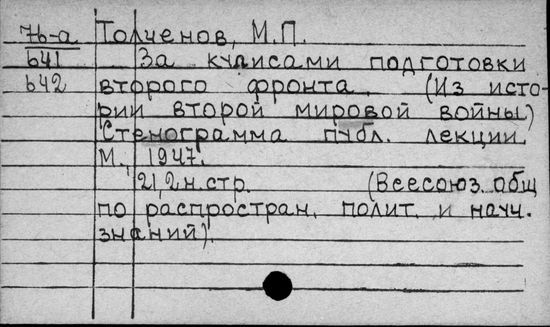 76-а Толченов, М.П.
641 За кулисами подготовки
642 второго фронта. (Из исто-
рии второй мировой войны)
Стенограмма публ. лекции.
М., 1947.
21, 2 н. стр. (Всесоюз. общ
по распростран. полит. и науч.
знаний).